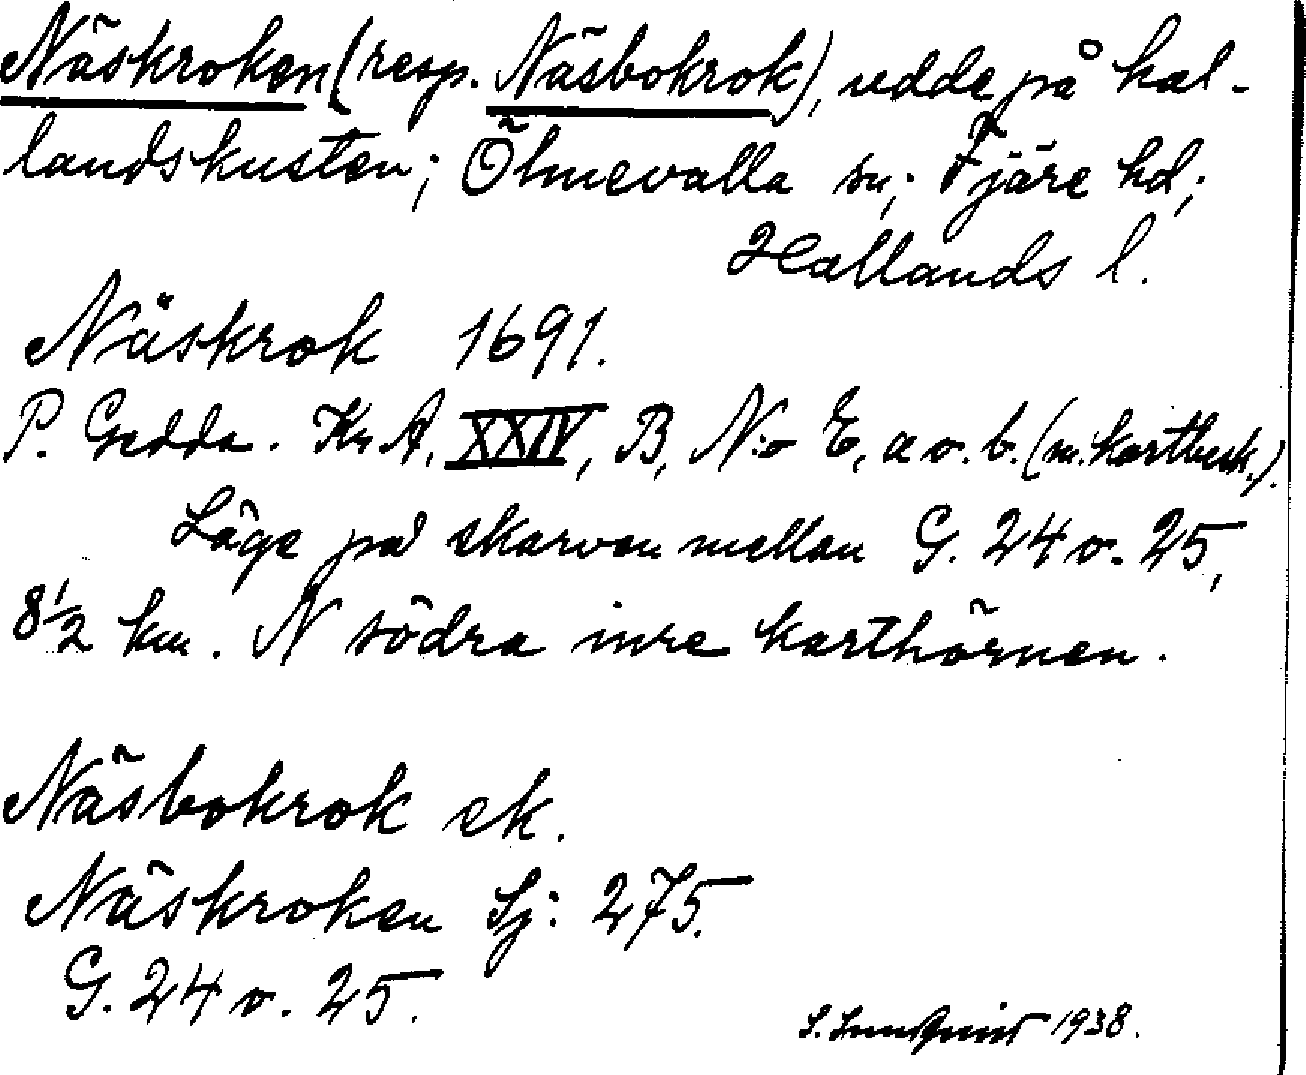 Näskroken (resp. Näsbokrok), udde på hal-
landskusten; Ölmevalla sn; Fjäre hd;
Hallands l.
Näskrok 1691.
P. Gedda. Kr A, XXIV, B, N:o E, a o. b. (m. kartbesk.).
Läge på skarven mellan G. 24 o. 25,
8 1/2 km. N södra inre karthörnen.
Näsbokrok ek.
Näskroken Sj: 275.
G. 24 o. 25.
S. Lundquist 1938.